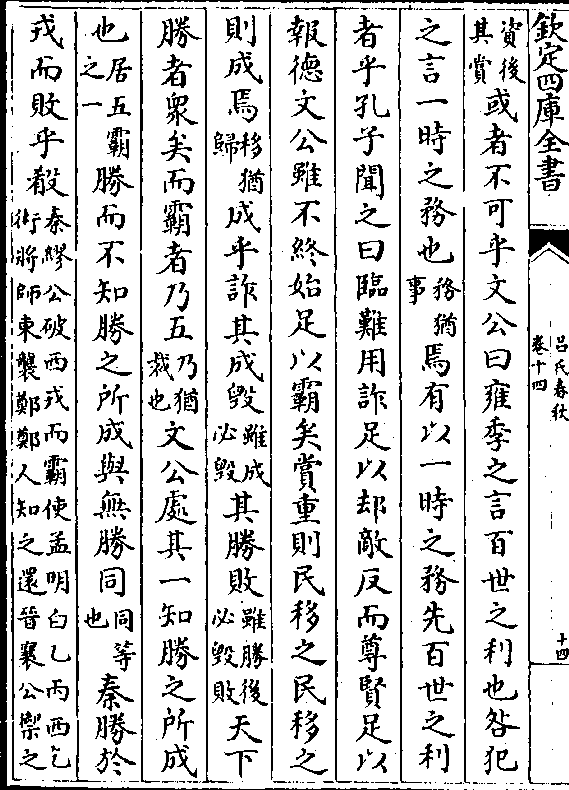 欽定四庫全書
呂氏春秋
卷十四
十四
資後其賞或者不可乎文公曰雍季之言百世之利也咎犯
之言一時之務也務猶事焉有以一時之務先百世之利
者乎孔子聞之曰臨難用詐足以却敵反而尊賢足以
報德文公雖不終始足以霸矣賞重則民移之民移之
則成焉移猶歸成乎詐其成毀雖成必毀其勝敗雖勝後必毀敗天下
勝者衆矣而霸者乃五乃猶裁也文公處其一知勝之所成
也居五霸之一勝而不知勝之所成與無勝同同等也秦勝於
戎而敗乎殽秦繆公破西戎而霸使孟明白乙丙西乞術將師東襲鄭鄭人知之還晉襄公禦之